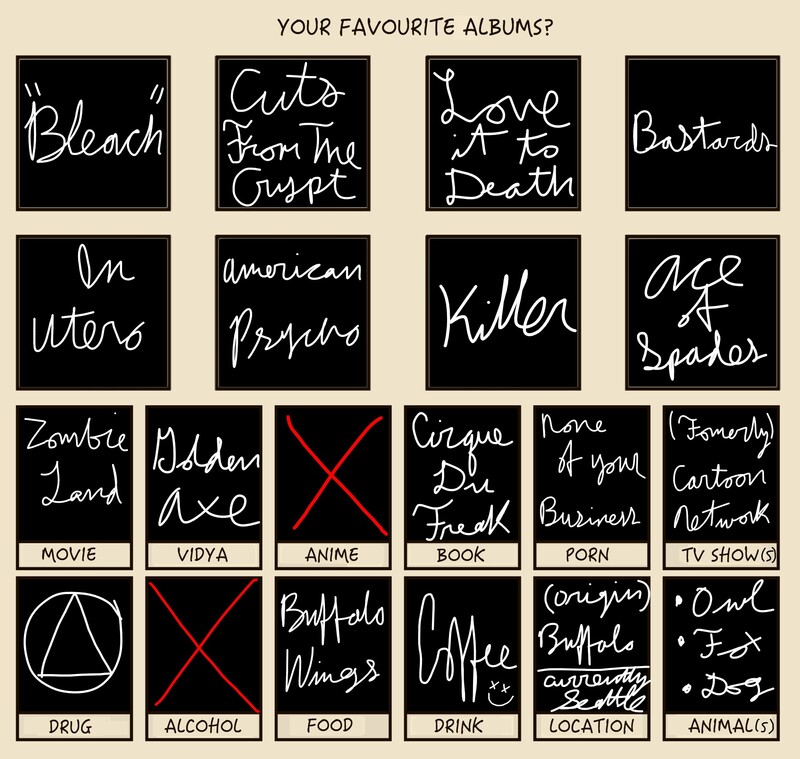 YOUR FAVOURITE ALBUMS?
"Bleach"
Cuts
From The
Crypt
Love
it to
Death
Bastards
In
Utero
american
Psycho
Killer
ace
of
Spades
Zombie
Land
MOVIE
Golden
axe
VIDYA
ANIME
Cirque
Du
Freak
BOOK
None
of your
Business
PORN
(Fomerly)
Cartoon
Network
TV SHOW(S)
DRUG
ALCOHOL
Buffalo
Wings
FOOD
Coffee
DRINK
(origin)
Buffalo
currently
Seattle
LOCATION
• Owl
• Fox
• Dog
ANIMAL(S)